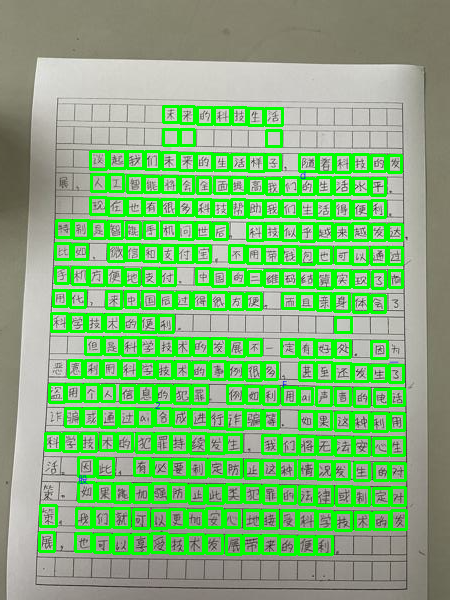 未来的科技生活
谈起我们未来的生活样子。随着科技的发
展,人工智能将会全面提高我们的生活水平。
现在也有很多科技帮助我们生活得便利。
特别是智能手机问世后,科技似乎越来越发达
比如,微信和支付宝。不用带钱包也可以通过
手机方便地支付。中国的二维码结算实现了商
用化,来中国后过得很方便。而且亲身体会了
科学技术的便利。
但是科学技术的发展不一定有好处。因为
恶意利用科学技术的事例很多。甚至还发生了
盗用个人信息的犯罪。例如利用ai声音的电话
诈骗或通过ai合成进行诈骗等。如果这种利用
科学技术的犯罪持续发生。我们将无法安心生
活。因此,有必要制定防止这种情况发生的对
策。如果能加强防止此类犯罪的法律或制定对
策,我们就可以更加安心地接受科学技术的发
展,也可以享受技术发展带来的便利